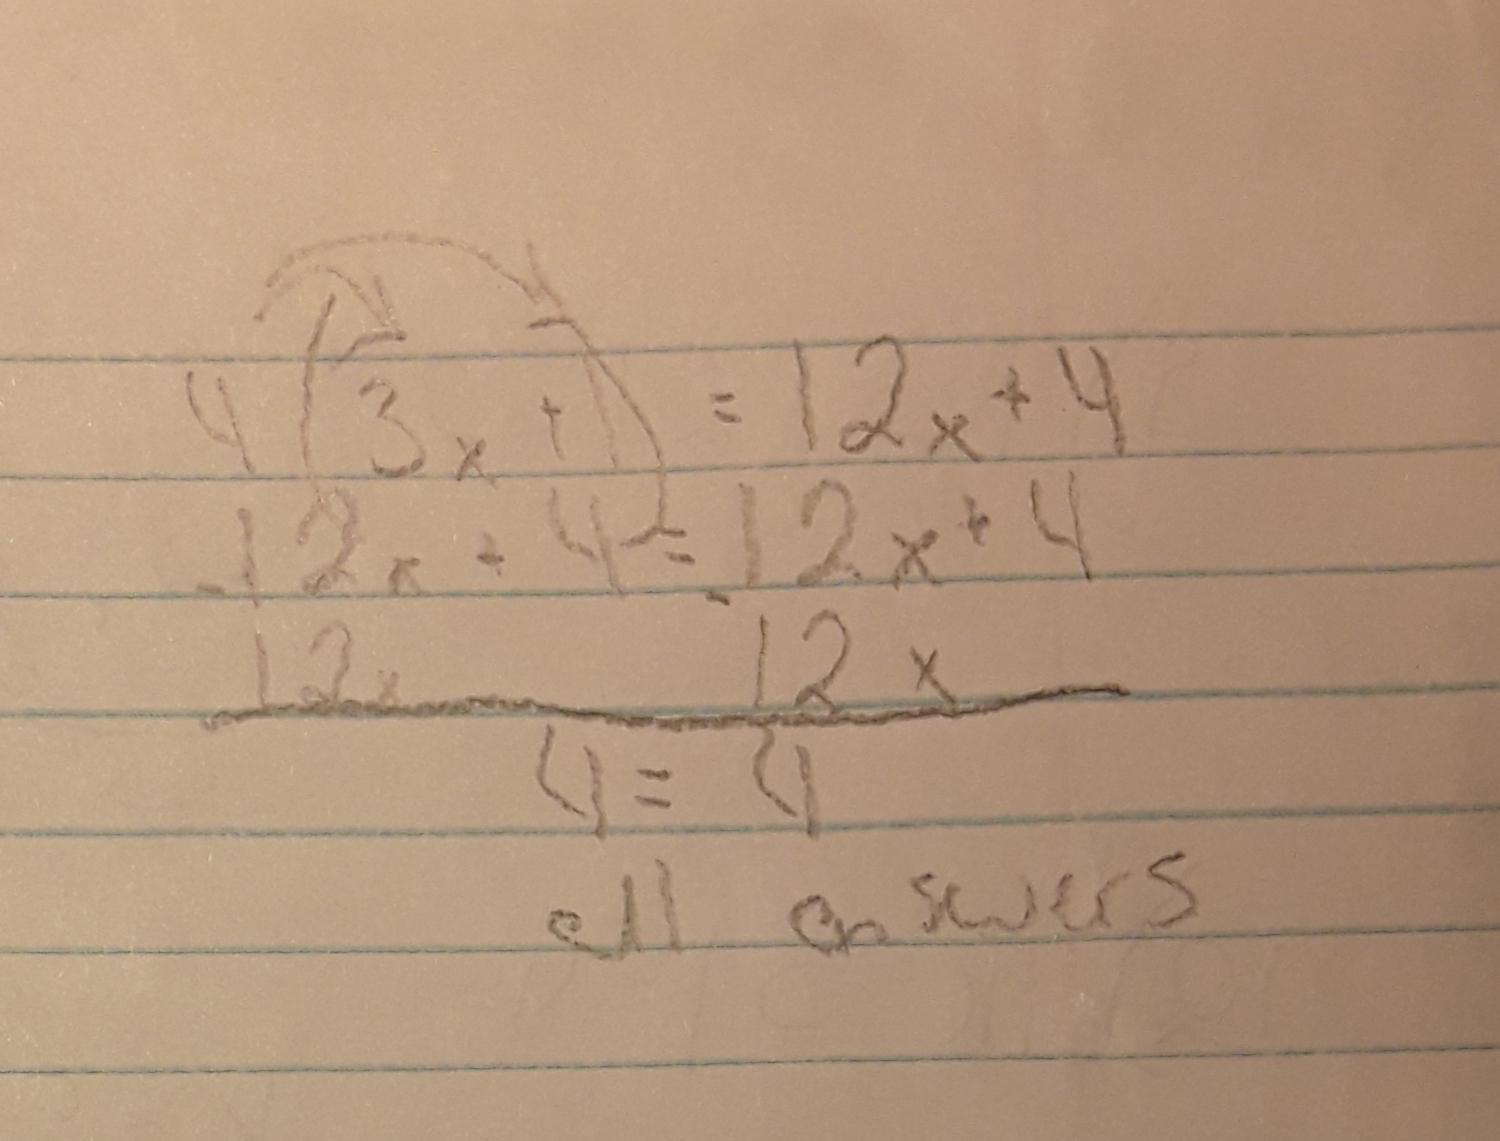 4(3x+1) = 12x+4
12x+4=12x+4
-12x -12x
4=4
all answers